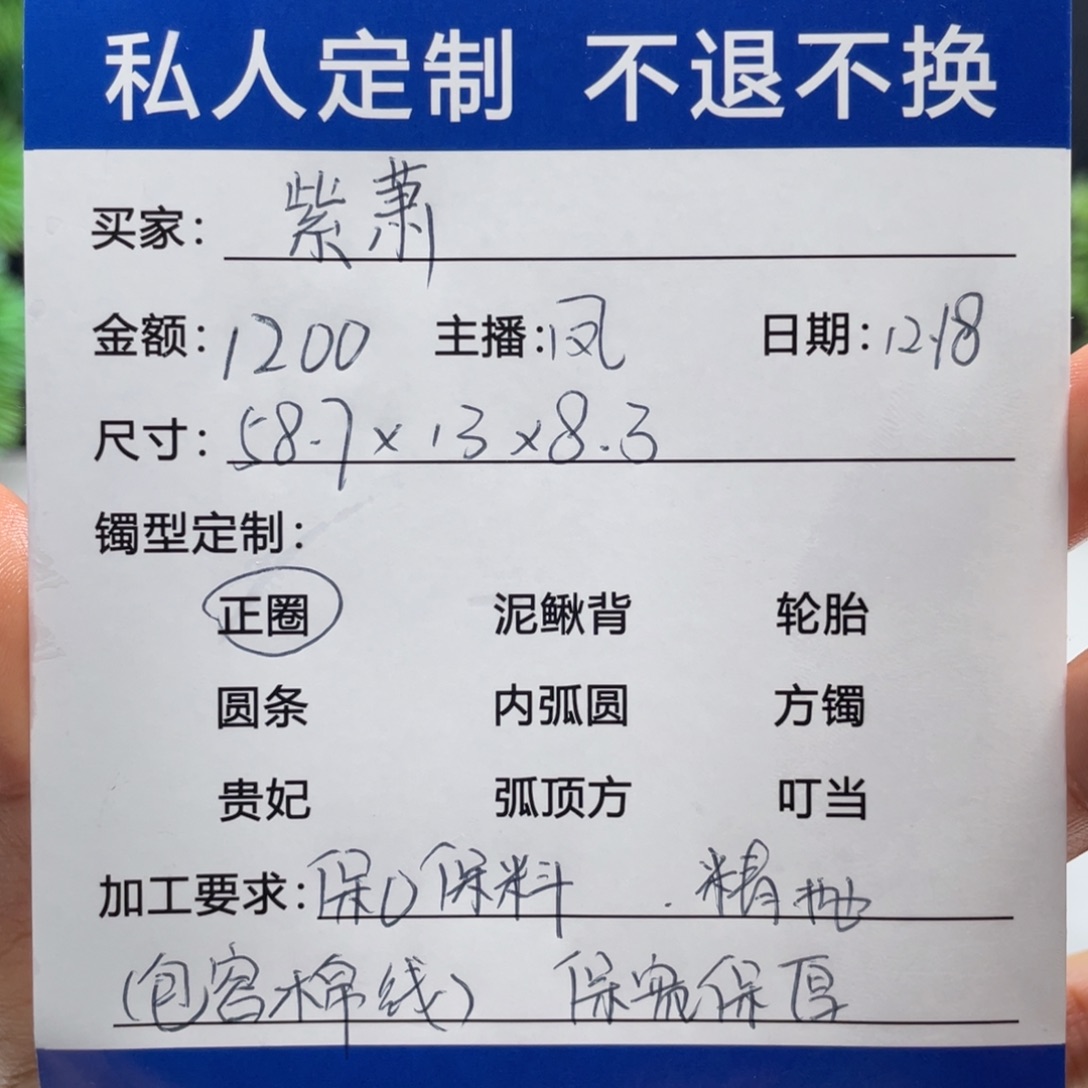 私人定制 不退不换
买家：紫萧
金额：1200 主播：凤 日期：12.18
尺寸：58.7×13×8.3
镯型定制：
正圈 泥鳅背 轮胎
圆条 内弧圆 方镯
贵妃 弧顶方 叮当
加工要求：保口保料 . 精抛
(包容棉线) 保宽保厚